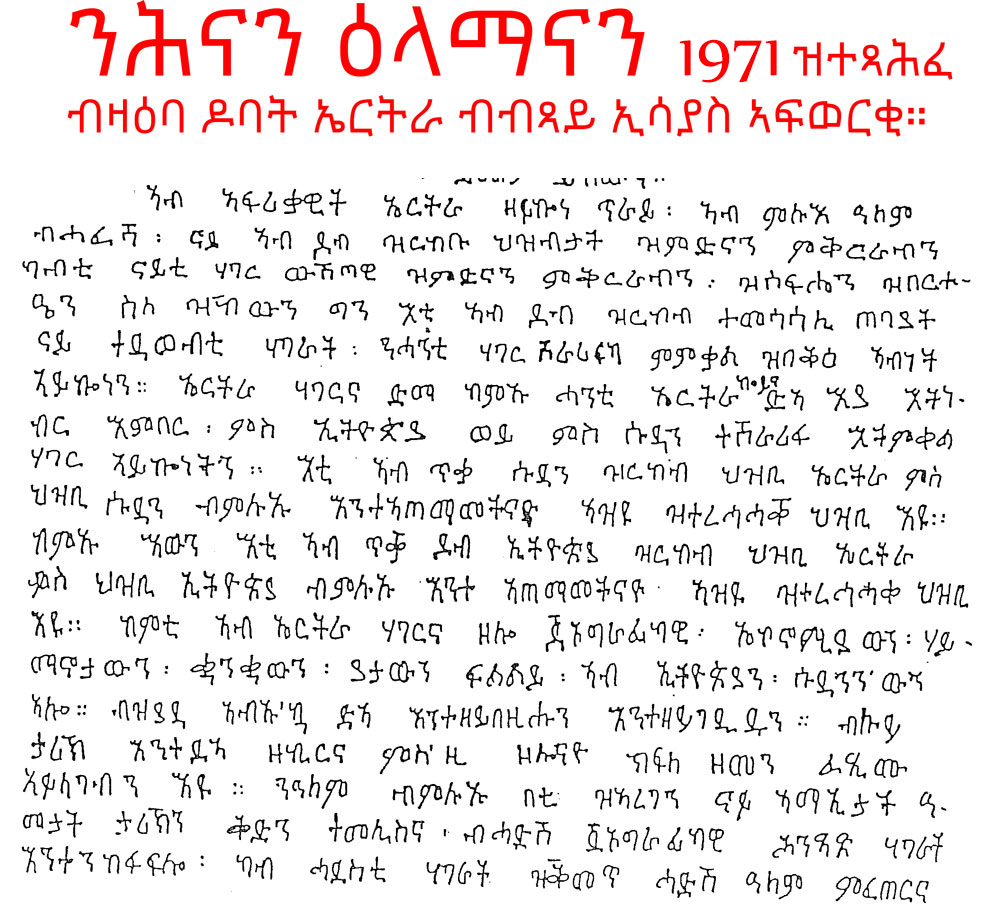 ንሕናን ዕላማናን 1971 ዝተጻሕፈ
ብዛዕባ ዶባት ኤርትራ ብብጻይ ኢሳያስ ኣፍወርቂ።
ኣብ ኣፍሪቃዊት ኤርትራ ዘይኰነ ጥራይ፡ ኣብ ምሉእ ዓለም
ብሓፈሻ፡ ናይ ኣብ ደብ ዝርከቡ ህዝብታት ዝምድናን ምቅርራብን
ካብቲ ናይቲ ሃገር ውሽጣዊ ዝምድናን ምቅርራብን፡ ዝሰፍሐን ዝበርተ-
ዔን ስለ ዝኾውን ግን እቲ ኣብ ደብ ዝርከብ ተመሳሳሊ ጠባያት
ናይ ተዳወብቲ ሃገራት፡ ንሓንቲ ሃገር ሸራሪፍካ ምምቃል ዝበቅዕ ኣብነት
ኣይኰነን። ኤርትራ ሃገርና ድማ ከምኡ ሓንቲ ኤርትራ ኰይና ድኣ እያ እትነ-
ብር እምበር፡ ምስ ኢትዮጵያ ወይ ምስ ሱዳን ተሸራሪፋ እትምቀል
ሃገር ኣይኰነትን። እቲ ኣብ ጥቃ ሱዳን ዝርከብ ህዝቢ ኤርትራ ምስ
ህዝቢ ሱዳን ብምሉኡ እንተኣጠማመትናዮ ኣዝዩ ዝተረሓሓቐ ህዝቢ እዩ።
ከምኡ እውን እቲ ኣብ ጥቓ ደብ ኢትዮጵያ ዝርከብ ህዝቢ ኤርትራ
ምስ ህዝቢ ኢትዮጵያ ብምሉኡ እንተ ኣጠማመትናዮ ኣዝዩ ዝተረሓሓቀ ህዝቢ
እዩ። ከምቲ ኣብ ኤርትራ ሃገርና ዘሎ ጆኦግራፊካዊ፡ ኤኮኖሚያውን፡ ሃይ-
ማኖታውን፡ ቋንቋውን፡ ያታውን ፍልልይ፡ ኣብ ኢትዮጵያን፡ ሱዳንን'ውን
ኣሎ። ብዝያዳ ኣብኡ'ኳ ድኣ እንተዘይበዚሑን እንተዘይገዲዱን። ብኡይ
ታሪኽ እንተደኣ ዘኪርና ምስ'ዚ ዘሎናዮ ክፍለ ዘመን ፈጺሙ
ኣይሰማማዕን እዩ። ንዓለም ብምሉኡ በቲ ዝኣረገን ናይ ኣማኢታት ዓ-
መታት ታሪኽን ቅድን ተመሊስና፡ ብሓድሽ ጆኦግራፊካዊ ሕንጻጽ ሃገራት
እንተንከፋፍሎ፡ ካብ ሓደስቲ ሃገራት ዝቖመጥ ሓድሽ ዓለም ምፈጠርና